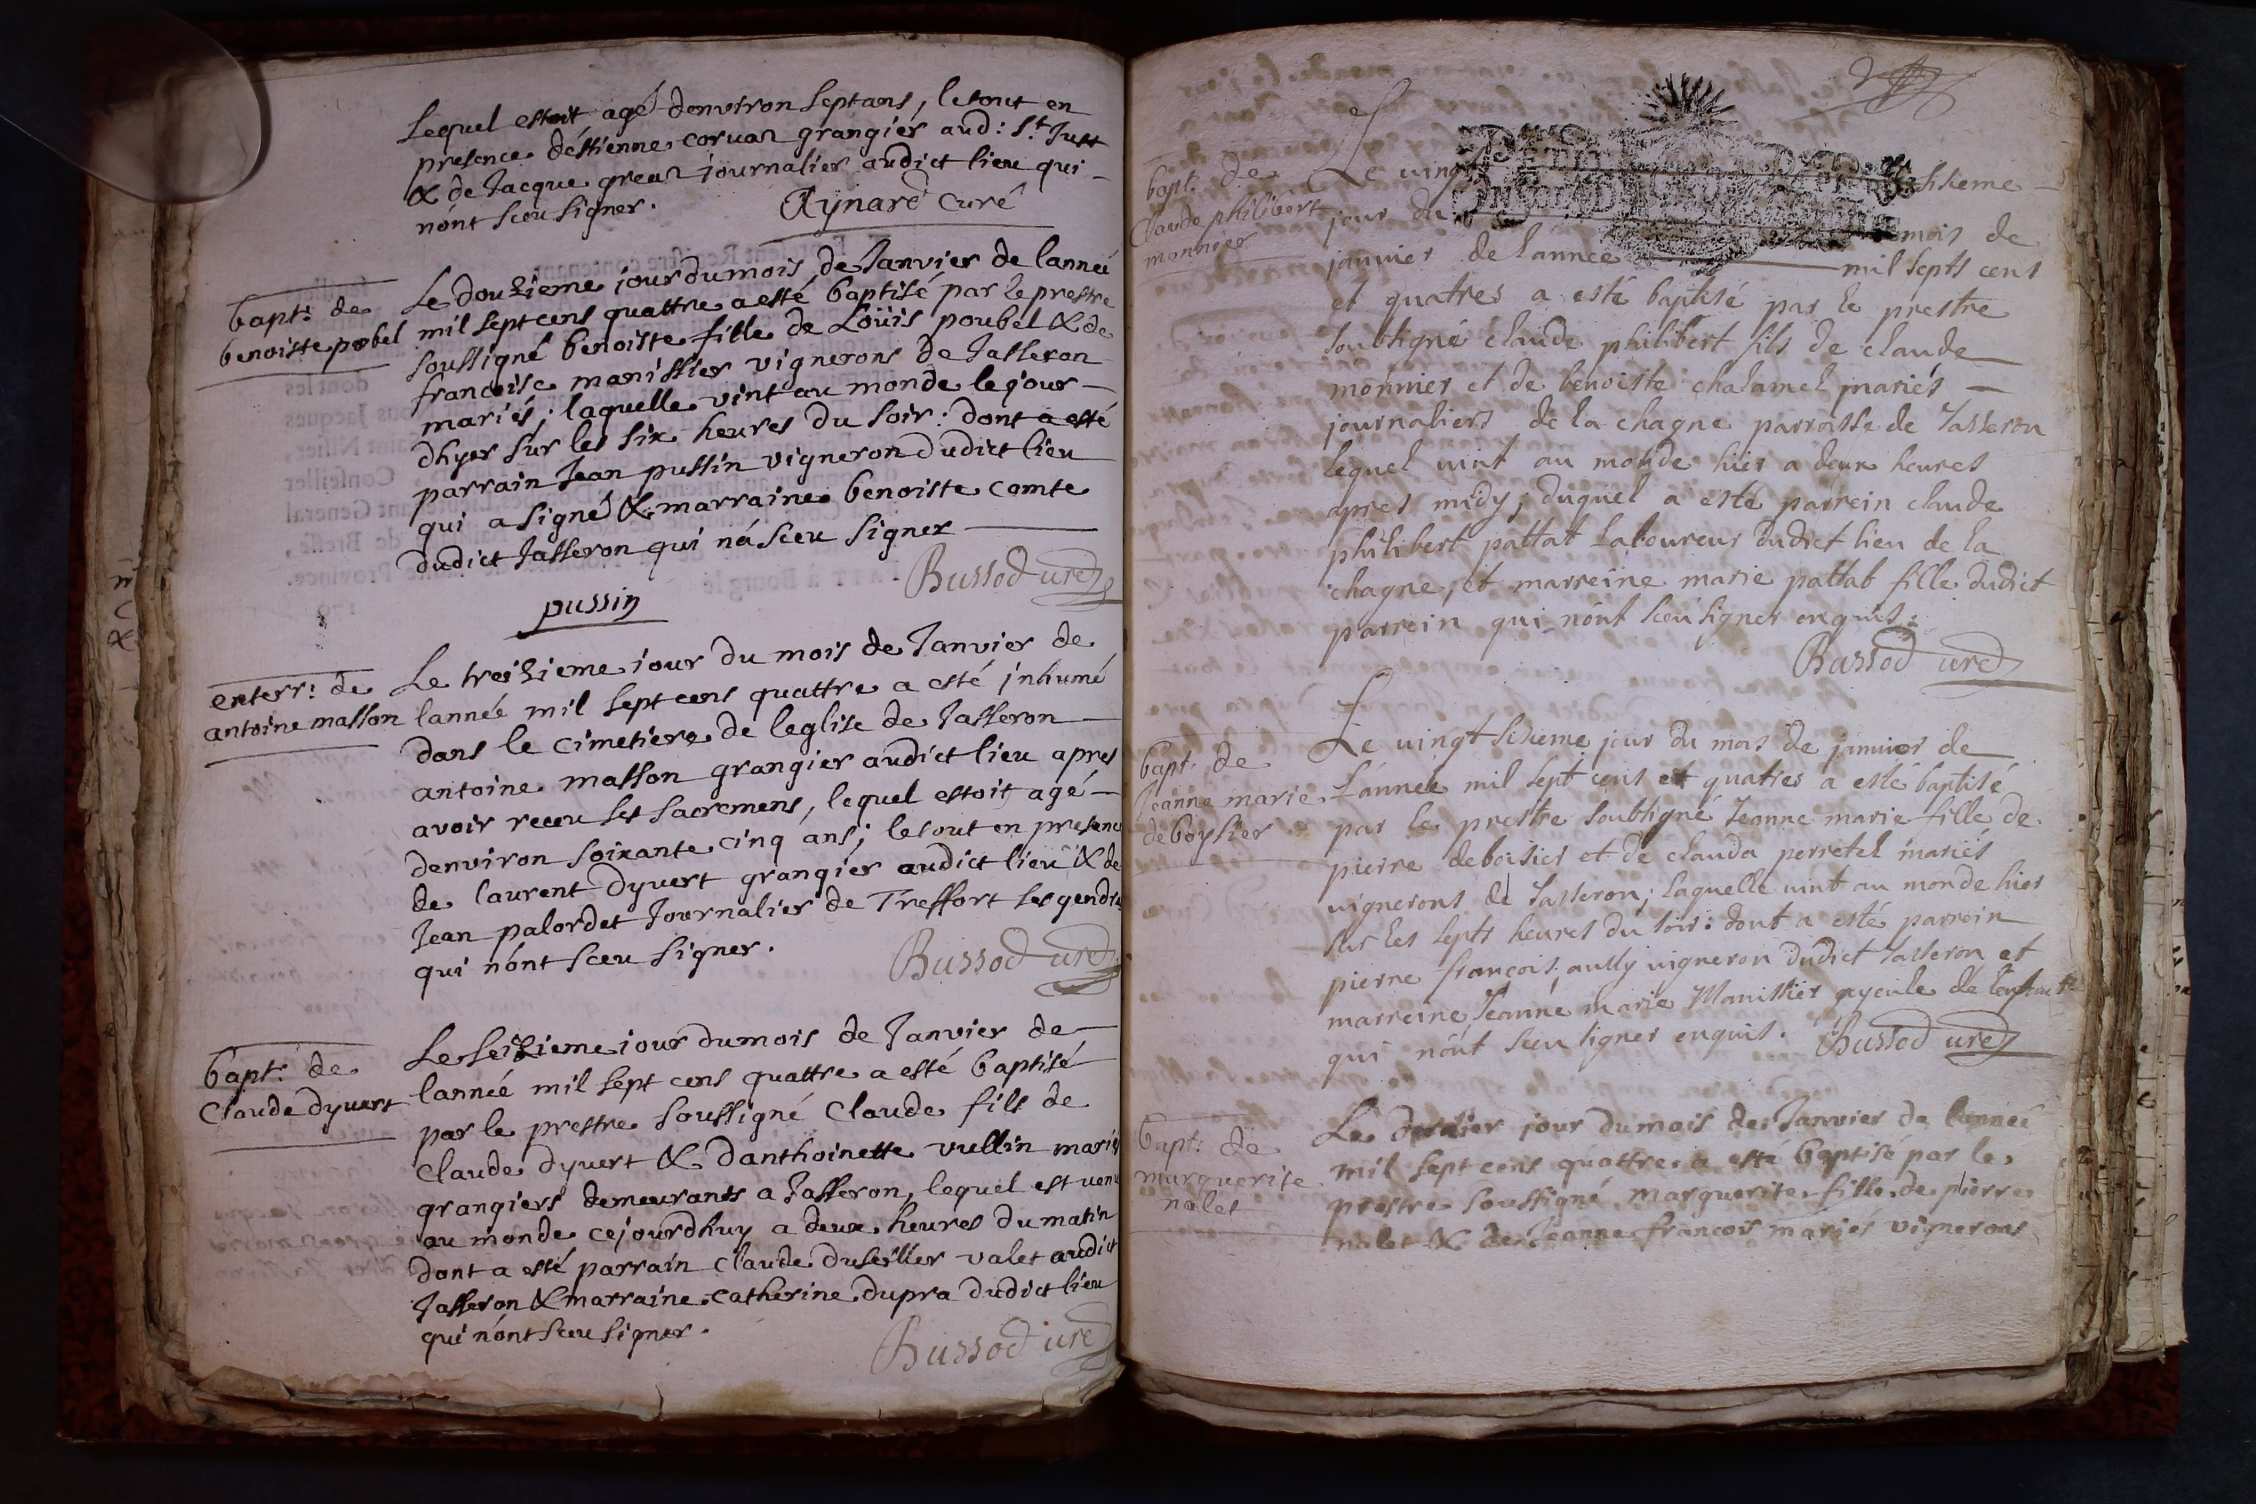 Lequel estoit agé denviron sept ans, le tout en
presence déstienne corvaz grangier aud: St Just
& de Jacque greaz journalier audict lieu qui
nónt sceu signer.
Aynard Curé
bapt: de
benoiste pobel
Le douzieme jour du mois de Janvier de lanneé
mil sept cens quattre a esté baptisé par le prestre
soussigné benoiste fille de Loüis poubel & de
francoise manissier vignerons de Jasseron
mariés; laquelle vint au monde le jour
dhyer sur les six heures du soir: dont a esté
parrain Jean pussin vigneron dudict lieu
qui a signé & marraine benoiste comte
dudict Jasseron qui ná sceu signer
Bussod
pussin
enterr: de
antoine masson
Le treizieme jour du mois de Janvier de
lannée mil sept cens quattre a esté jnhumé
dans le cimetiere de leglise de Jasseron
antoine masson grangier audict lieu apres
avoir receu ses sacremens, lequel estoit agé
denviron soixante cinq ans; le tout en presence
de laurent dyvert grangier audict lieu & de
Jean palordet Journalier de Treffort ses gendre
qui nónt sceu signer.
Bussod
bapt: de
Claude dyvert
Le seizieme jour du mois de Janvier de
lannée mil sept cens quattre a esté baptisé
par le prestre soussigné Claude fils de
Claude dyvert & danthoinette vullin mariés
grangiers demeurants a Jasseron, lequel est venu
au monde cejourdhuy a deux heures du matin
dont a esté parrain Claude duseiller valet audict
Jasseron & marraine catherine dupra dudict lieu
qui nónt sceu signer.
Bussod
bapt: de
Claude philibert
monnier
Le vingt
jour du mois de
janvier de lánnee mil septs cens
et quatres a esté baptisé par le prestre
soubsigné claude philibert fils de claude
monnier et de benoiste chalamel mariés
journaliers de la chagne parroisse de Jasseron
lequel vint au monde hier a deux heures
apres midy; duquel a esté parrein claude
philibert pattat Laboureur dudict lieu de la
chagne, et marreine marie pattat fille dudict
parrein qui nónt sceu signer enquis.
Bussod
bapt. de
Jeanne marie
deboysier
Le vingt sixieme jour du mois de janvier de
Lánnée mil sept cens et quatres a esté baptisé
par le prestre soubsigné Jeanne marie fille de
pierre deboisier et de clauda perretel mariés
vignerons de Jasseron; laquelle vint au monde hier
sur les septs heures du soir: dont a esté parrein
pierre françois aussy vigneron dudict Jasseron et
marreine Jeanne marie Manissier ayeule de
qui nónt sceu signer enquis.
Bussod
bapt: de
marguerite
nalet
Le dernier jour du mois de Janvier de lanneé
mil sept cens quattre a esté baptisé par le
prestre soussigné marguerite fille de pierre
nalet & de Jeanne francois mariés vignerons